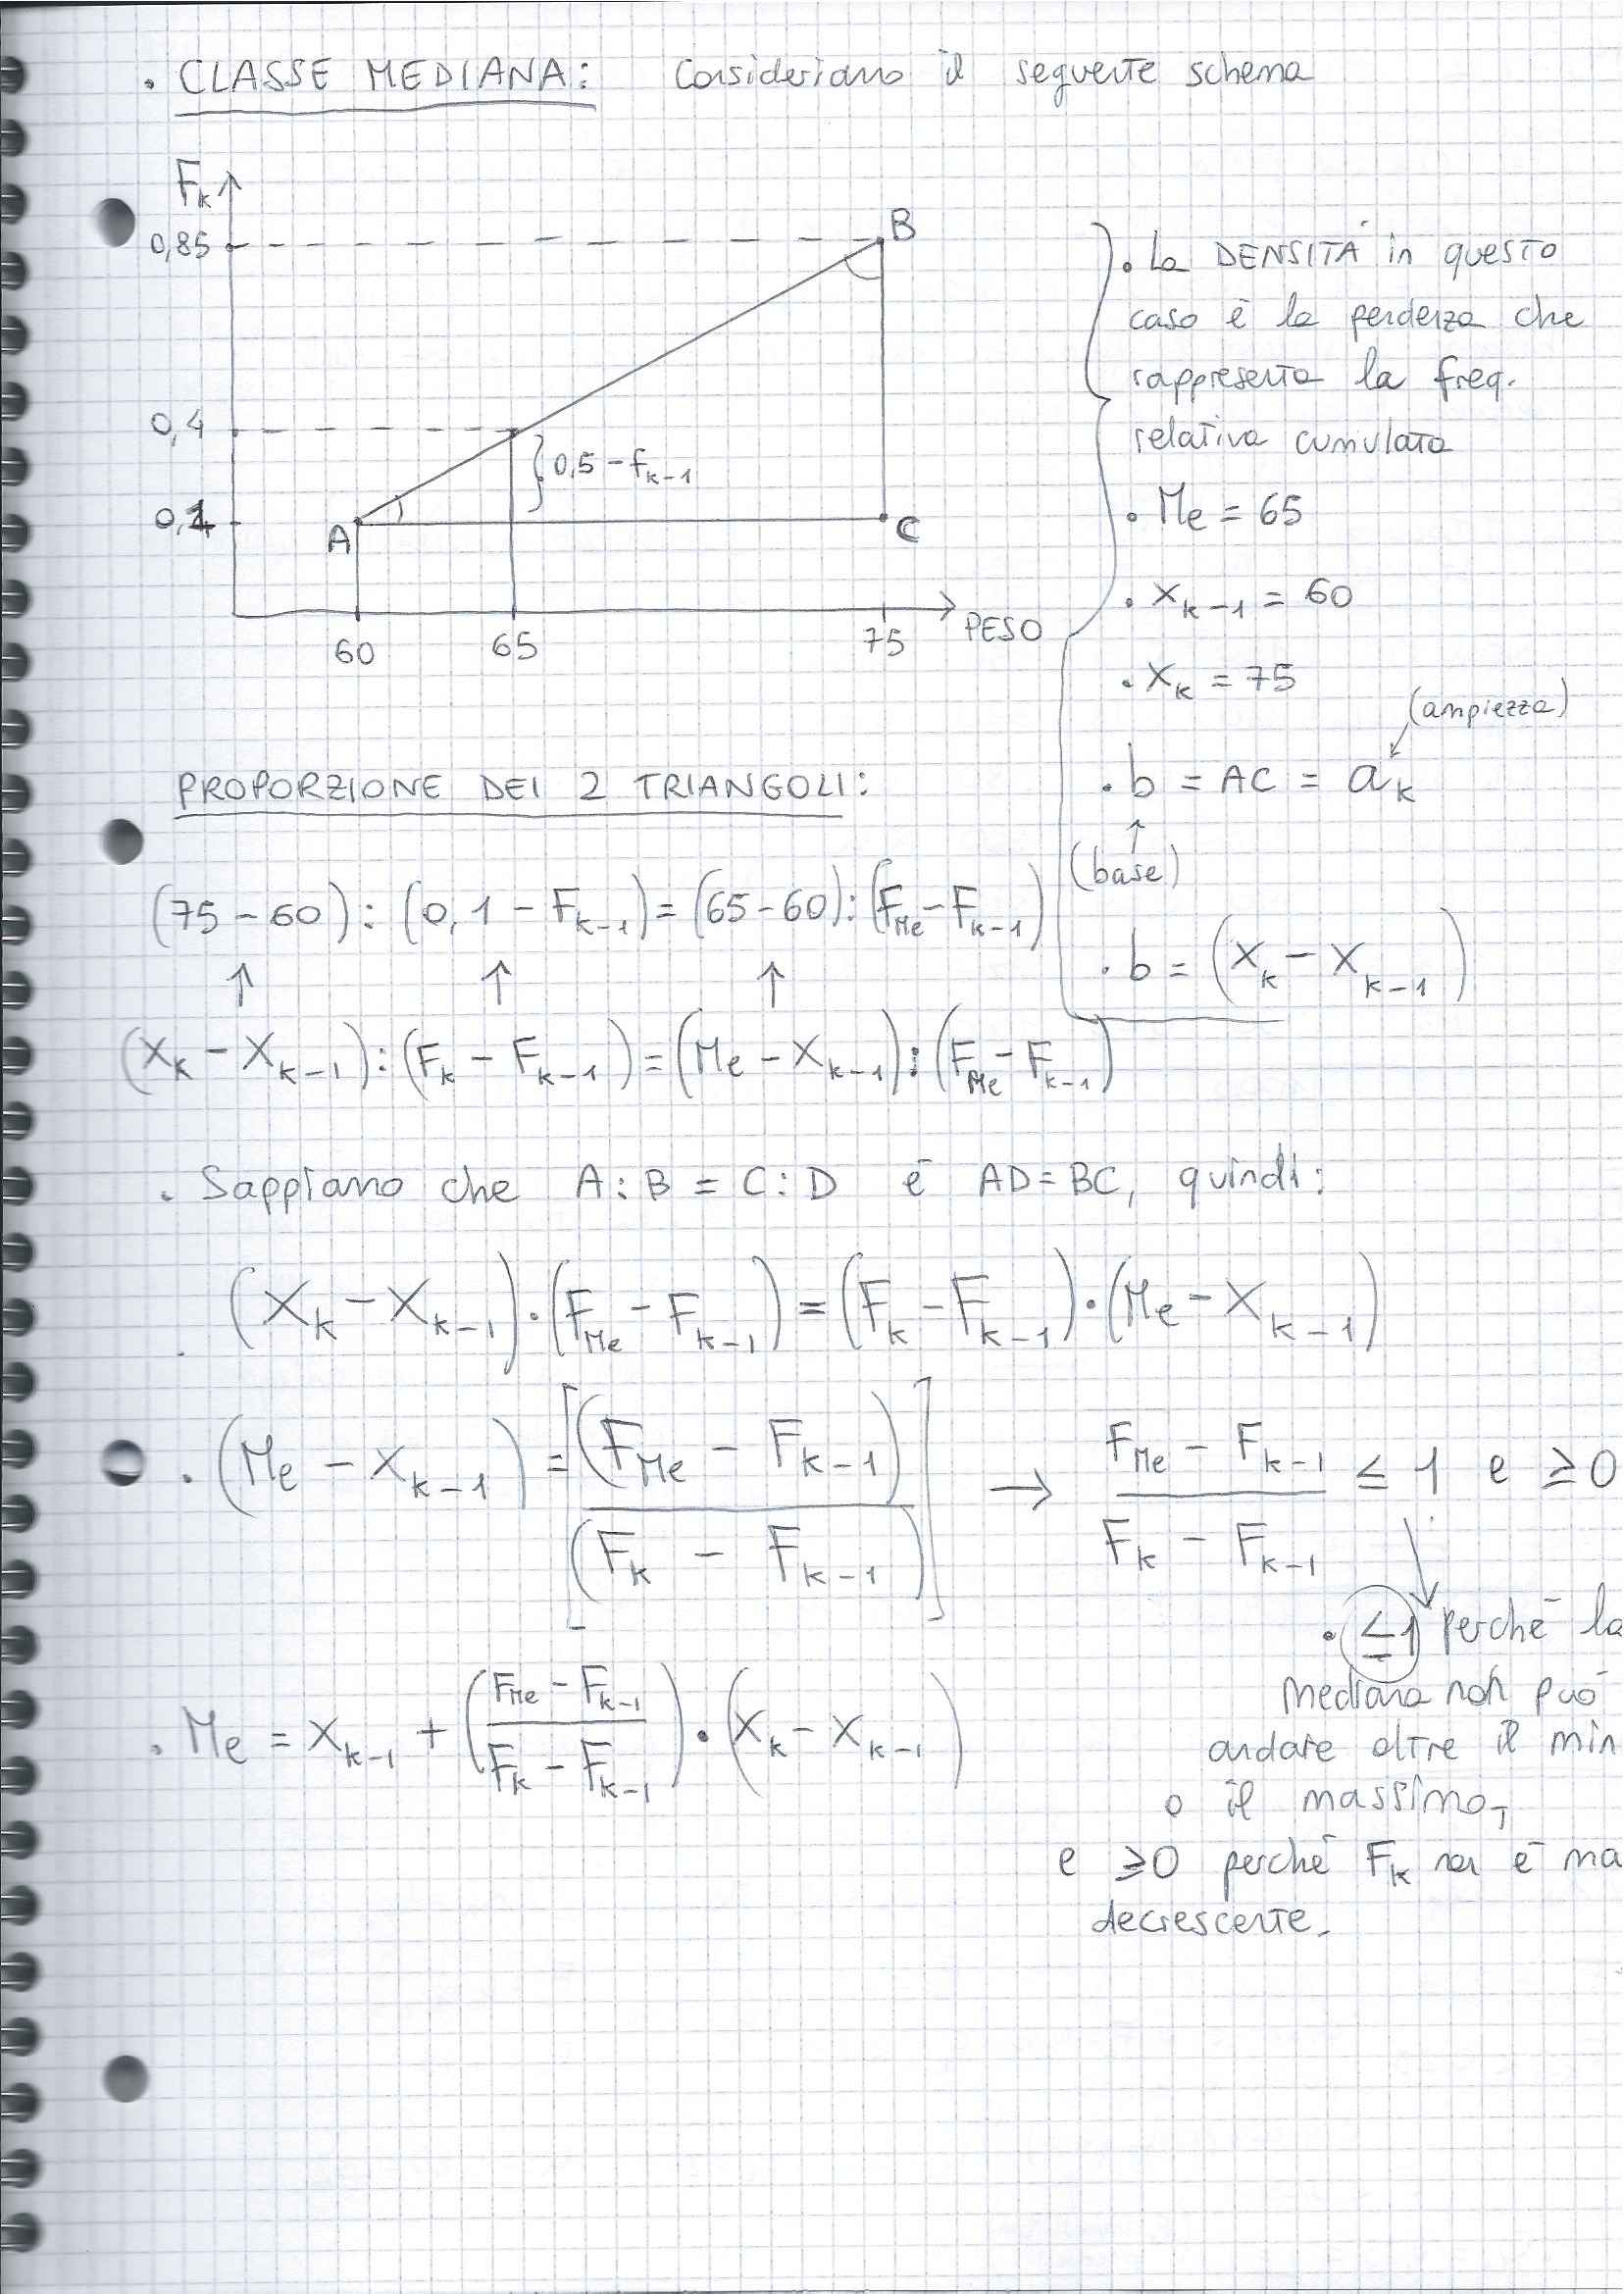 . CLASSE MEDIANA: Consideriamo il seguente schema
Fk
0,85
B
0,4
} 0,5 - fk-1
0,1
A
C
60
65
75
PESO
. La DENSITÀ in questo
caso è la pendenza che
rappresenta la freq.
relativa cumulata
. Me = 65
. xk-1 = 60
. xk = 75
(ampiezza)
. b = AC = ak
(base)
. b = (xk - xk-1)
PROPORZIONE DEI 2 TRIANGOLI:
(75 - 60) : (0,1 - Fk-1) = (65 - 60) : (FMe - Fk-1)
↑ ↑ ↑
(xk - xk-1) : (Fk - Fk-1) = (Me - xk-1) : (FMe - Fk-1)
. Sappiamo che A : B = C : D è AD = BC, quindi:
. (xk - xk-1) · (FMe - Fk-1) = (Fk - Fk-1) · (Me - xk-1)
. (Me - xk-1) = [(FMe - Fk-1) / (Fk - Fk-1)] → FMe - Fk-1 / Fk - Fk-1 ≤ 1 e ≥ 0
. ≤1 perché la
mediana non può
andare oltre il min
o il massimo,
e ≥0 perché Fk non è ma
decrescente.
. Me = xk-1 + (FMe - Fk-1 / Fk - Fk-1) · (xk - xk-1)